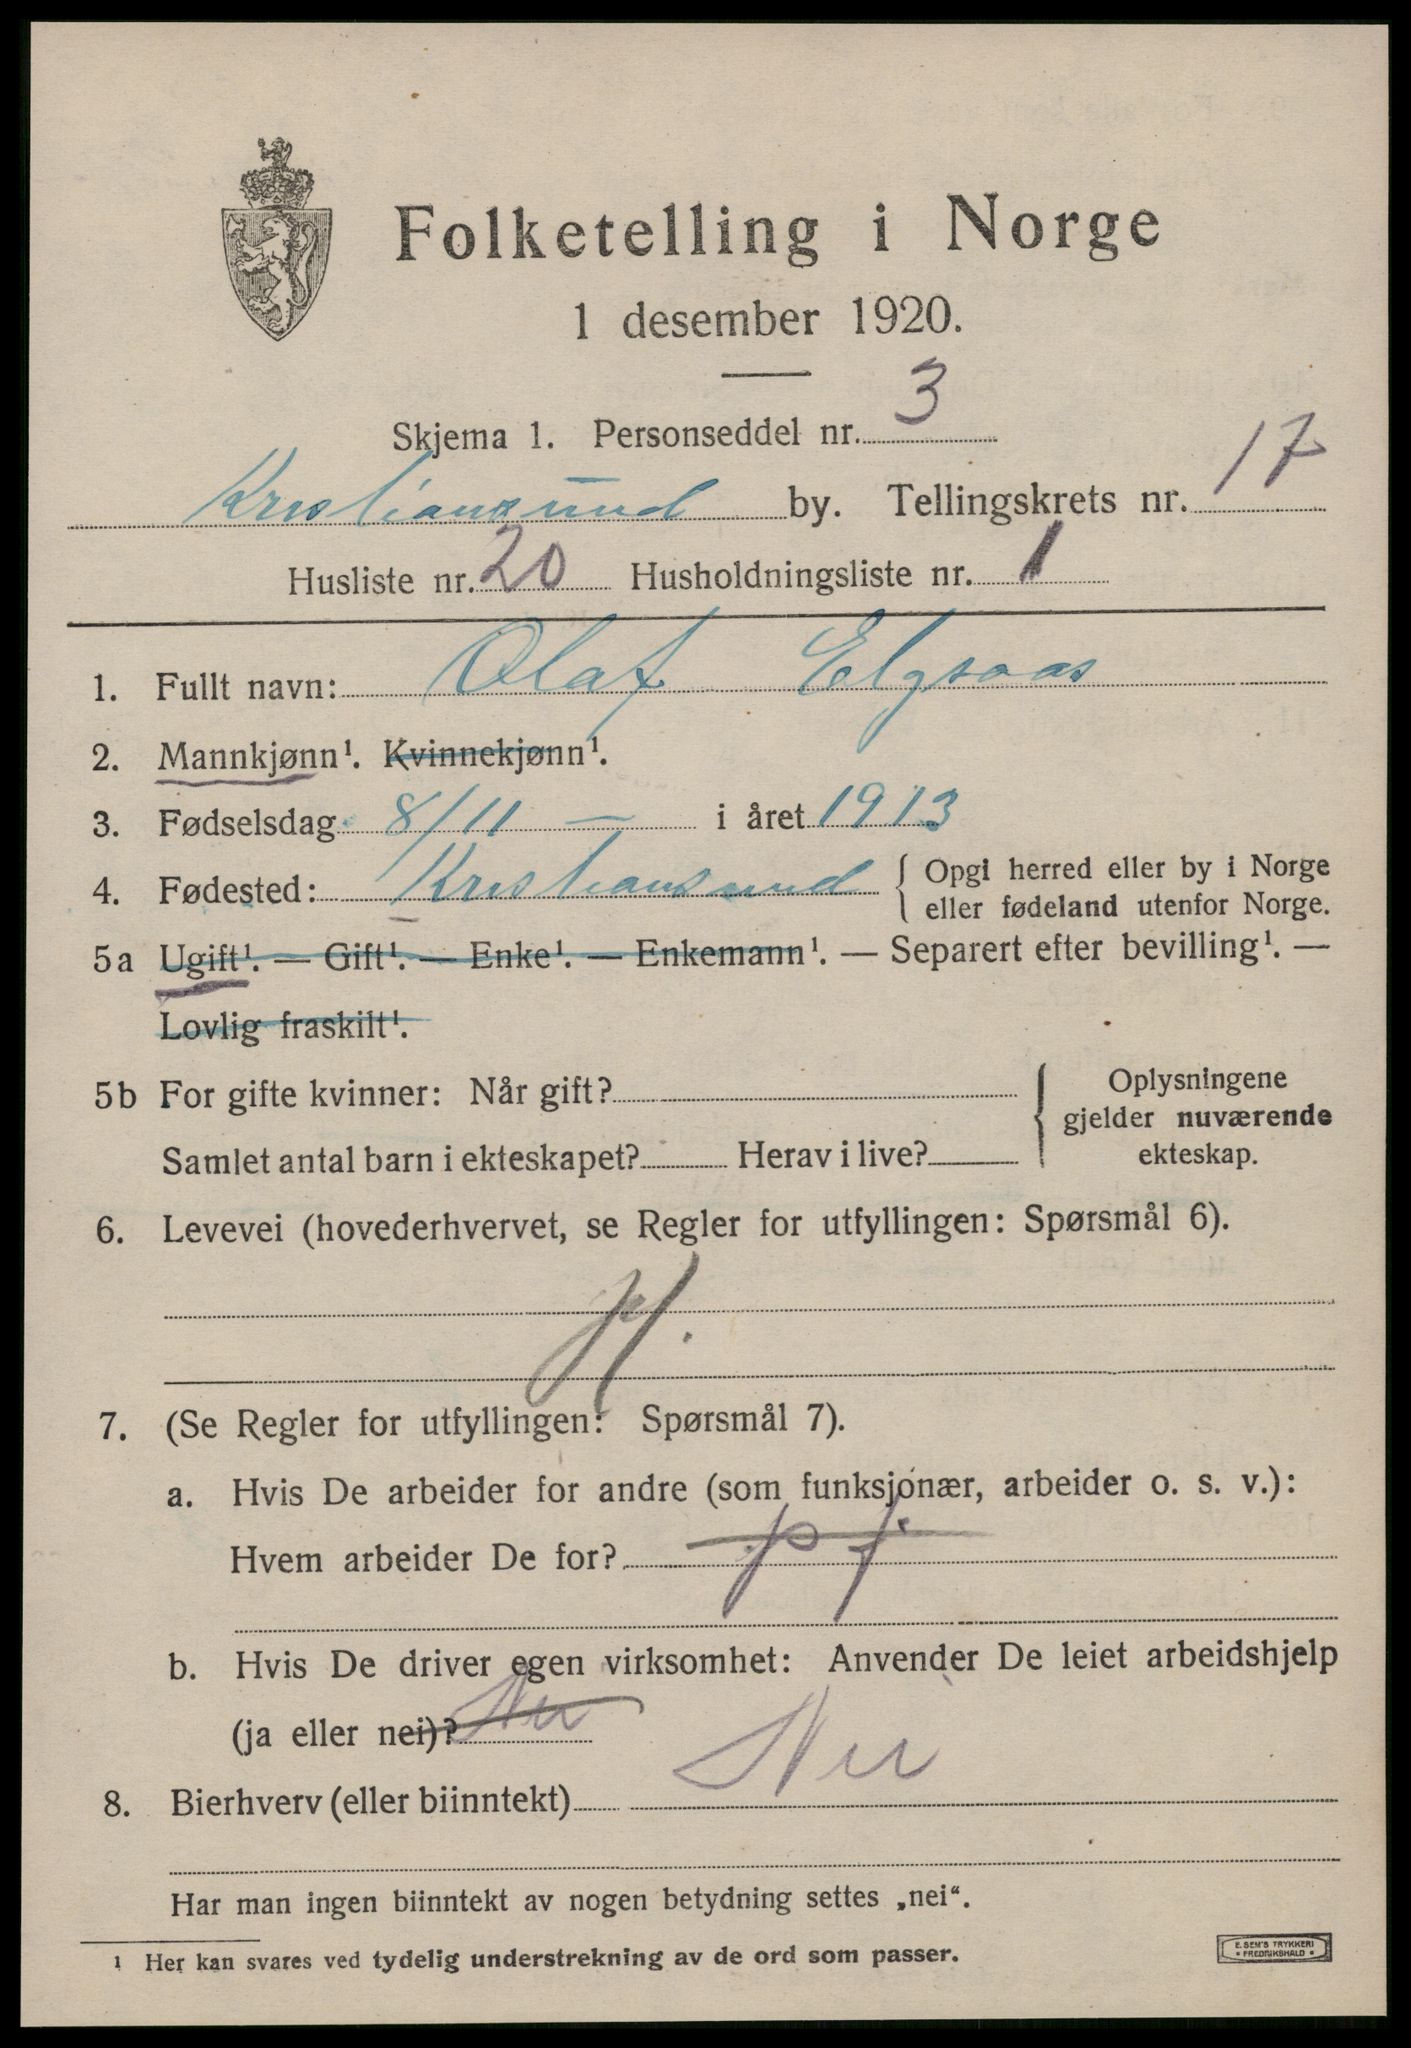 Folketelling i Norge
1 desember 1920.
Skjema 1. Personseddel nr. 3
Kristiansund by. Tellingskrets nr. 17
Husliste nr. 20 Husholdningsliste nr. 1
1. Fullt navn: Olaf Elgsaas
2. Mannkjønn¹. Kvinnekjønn¹.
3. Fødselsdag 8/11 — i året 1913
4. Fødested: Kristiansund { Opgi herred eller by i Norge
eller fødeland utenfor Norge.
5a Ugift¹. — Gift¹. — Enke¹. — Enkemann¹. — Separert efter bevilling¹. —
Lovlig fraskilt¹.
5b For gifte kvinner: Når gift?
Samlet antal barn i ekteskapet? Herav i live?
Oplysningene
gjelder nuværende
ekteskap.
6. Levevei (hovederhvervet, se Regler for utfyllingen: Spørsmål 6).
7. (Se Regler for utfyllingen: Spørsmål 7).
a. Hvis De arbeider for andre (som funksjonær, arbeider o. s. v.):
Hvem arbeider De for?
b. Hvis De driver egen virksomhet: Anvender De leiet arbeidshjelp
(ja eller nei)? Nei
8. Bierhverv (eller biinntekt) Nei
Har man ingen biinntekt av nogen betydning settes „nei“.
¹ Her kan svares ved tydelig understrekning av de ord som passer.
E. SEM'S TRYKKERI
• FREDRIKSHALD •